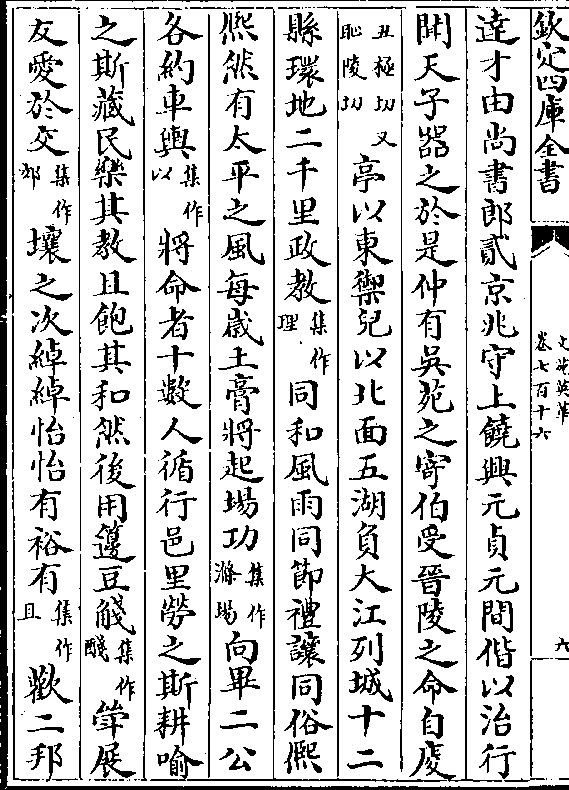 欽定四庫全書
文苑英華
卷七百十六
六
達才由尚書郎貳京兆守上饒興元貞元間偕以治行
聞天子器之於是仲有吳苑之寄伯受晉陵之命自庱
丑極切又
恥陵切
亭以東禦兒以北面五湖負大江列城十二
縣環地二千里政教
集作
理
同和風雨同節禮讓同俗熙
熙然有太平之風每歲土膏將起場功
集作
滌場
向畢二公
各約車輿
集作
以
將命者十數人循行邑里勞之斯耕喻
之斯藏民樂其教且飽其和然後用籩豆觴
集作
醆
斝展
友愛於交
集作
郊
壤之次綽綽怡怡有裕有
集作
且
歡二邦